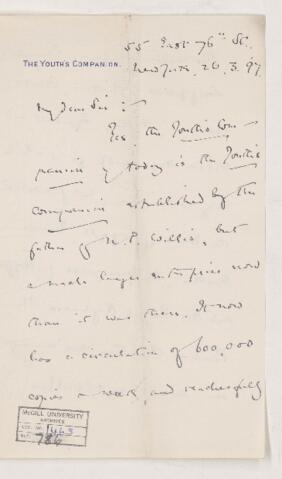 55 East 76th St.
THE YOUTH'S COMPANION.
New York, 26.3.97
My dear Sir :-
Yes the Youth's Com-
panion of today is the Youth's
Companion established by the
father of N. P. Willis, but
a much larger enterprise now
than it was then. It now
has a circulation of 600,000
copies a week, and reaches fully
McGILL UNIVERSITY
ARCHIVES
ACC. NO.
REF.